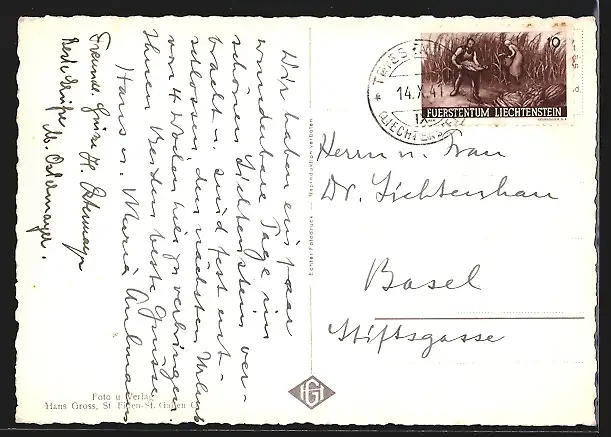 Wir haben ein paar
wunderbare Tage im
schönen Lichtenstein ver-
bracht u. sind fest ent-
schlossen, den nächsten Urlaub
von 4 Wochen hier zu verbringen.
Ihnen Beiden beste Grüsse
Hans u. Maria
Freundl. Grüsse H.
Beste Grüsse M.
Foto u. Verlag
Hans Gross, St. Fiden-St. Gallen
Echter Fotodruck — Reproduktion verboten
HGT
TRIESEN
14.X.41
(LIECHTENSTEIN)
10
FUERSTENTUM LIECHTENSTEIN
Herrn u. Frau
Dr. Lichtenhan
Basel
Stiftsgasse